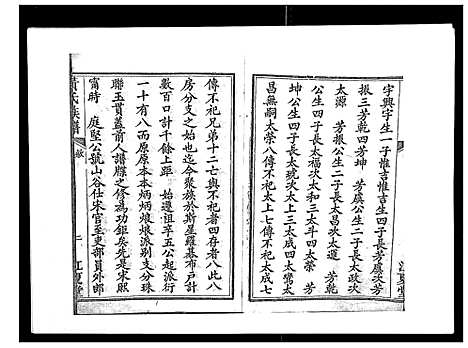 字興字生一子惟吉惟吉生四子長芳處次芳
振三芳乾四芳坤 芳處公生二子長太政次
太源 芳振公生二子長太昌次太運 芳乾
公生四子長太福次太和三太榮四太 芳
坤公生四子長太琥次太上三太成四太
昌無嗣太榮八傳不祀太上七傳不祀太成
傳不祀兄弟十二亡與不祀者四存者八此八
房分支之始也迄今聚族於斯星羅基布戶計
數百口計千餘上距 始遷祖卒五公起派行
一十有八而原原本本炳炳烺烺派别支分珠
聯玉貫蓋前人譜牒之修為功鉅矣先是宋熙
甯時 庭堅公號山谷仕宋官至吏部員外郎
黃氏族譜
敘
二
江夏堂